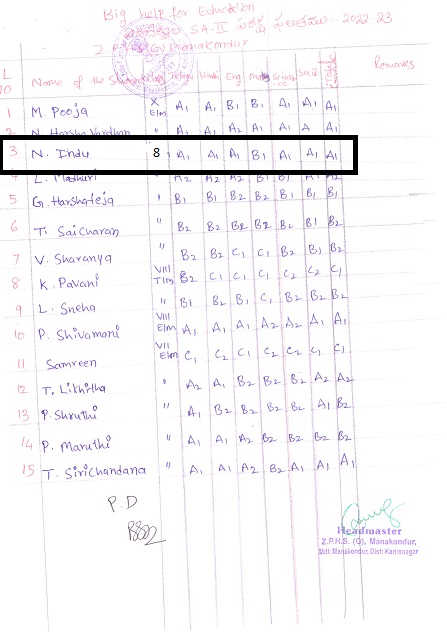 Big help for Education
SA-II పరీక్ష ఫలితములు 2022-23
Z.P.H.S (G) Manakondur
SL NO Name of the Student Class Telugu Hindi Eng Maths Science Social Grade Remarks
1 M. Pooja X Elm A1 A1 B1 B1 A1 A1 A1
2 N. Harsha Vardhan " A1 A1 A2 A1 A1 A A1
3 N. Indu 8 A1 A1 A1 B1 A1 A1 A1
4 L. Madhuri " A2 A2 A2 B1 B1 A1 A2
5 G. Harshateja " B1 B1 B2 B2 B1 B1 B1
6 T. Saicharan " B2 B2 B2 B2 B2 B1 B2
7 V. Sharanya " B2 B2 C1 C1 B2 B2 B2
8 K. Pavani VIII Tlm B2 C1 C1 C1 C2 C2 C1
9 L. Sneha " B1 B2 B1 C1 B2 B2 B2
10 P. Shivamani VIII Elm A1 A1 A1 A2 A2 A1 A1
11 Samreen VII Elm C1 C2 C1 C2 C2 C1 C1
12 T. Likhitha " A2 A1 B2 B2 B2 A2 A2
13 P. Shruthi " A1 B2 B2 B2 B2 A1 B2
14 P. Maruthi " A1 A1 A2 B2 B2 B2 B2
15 T. Sirichandana " A1 A1 A2 B2 A1 A1 A1
P.D
Headmaster
Z.P.H.S. (G), Manakondur,
Mdl: Manakondur, Dist: Karimnagar